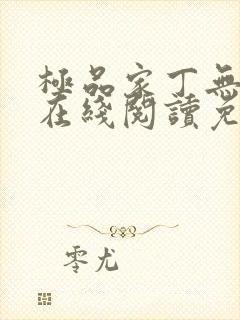 極品家丁無
在綫閱讀免
零尤